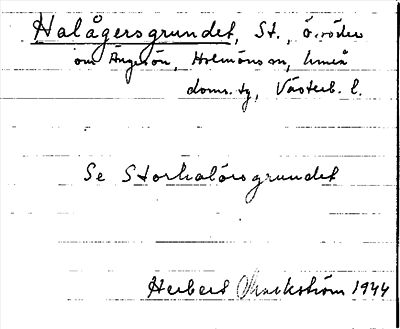 Halågersgrundet, St., ö, söder
om Ängesön, Holmöns sn, Umeå
doms. tg, Västerb. l.
Se Storhalörsgrundet
Herbert 1944